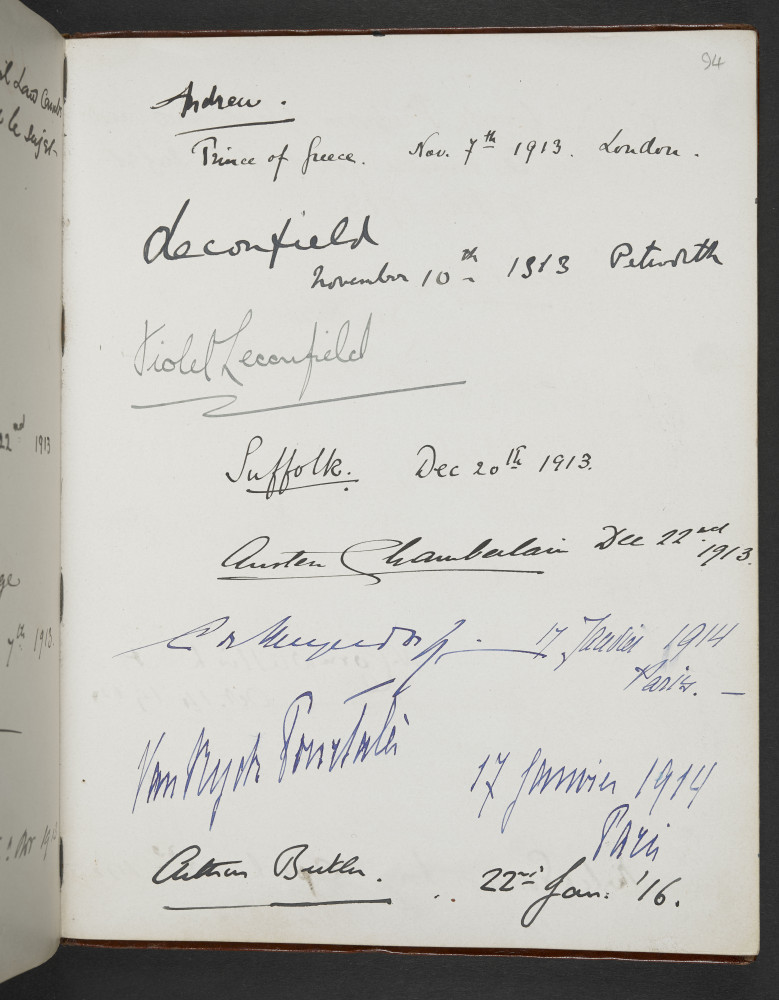 94
Andrew.
Prince of Greece. Nov. 7th 1913. London.
Leconfield
November 10th 1913 Petworth
Violet Leconfield
Suffolk. Dec 20th 1913.
Austen Chamberlain Dec 22nd 1913.
17 Janvier 1914
Paris. —
17 Janvier 1914
Paris
Arthur Butler. .. 22nd Jan: '16.
22nd 1913
7th 1913